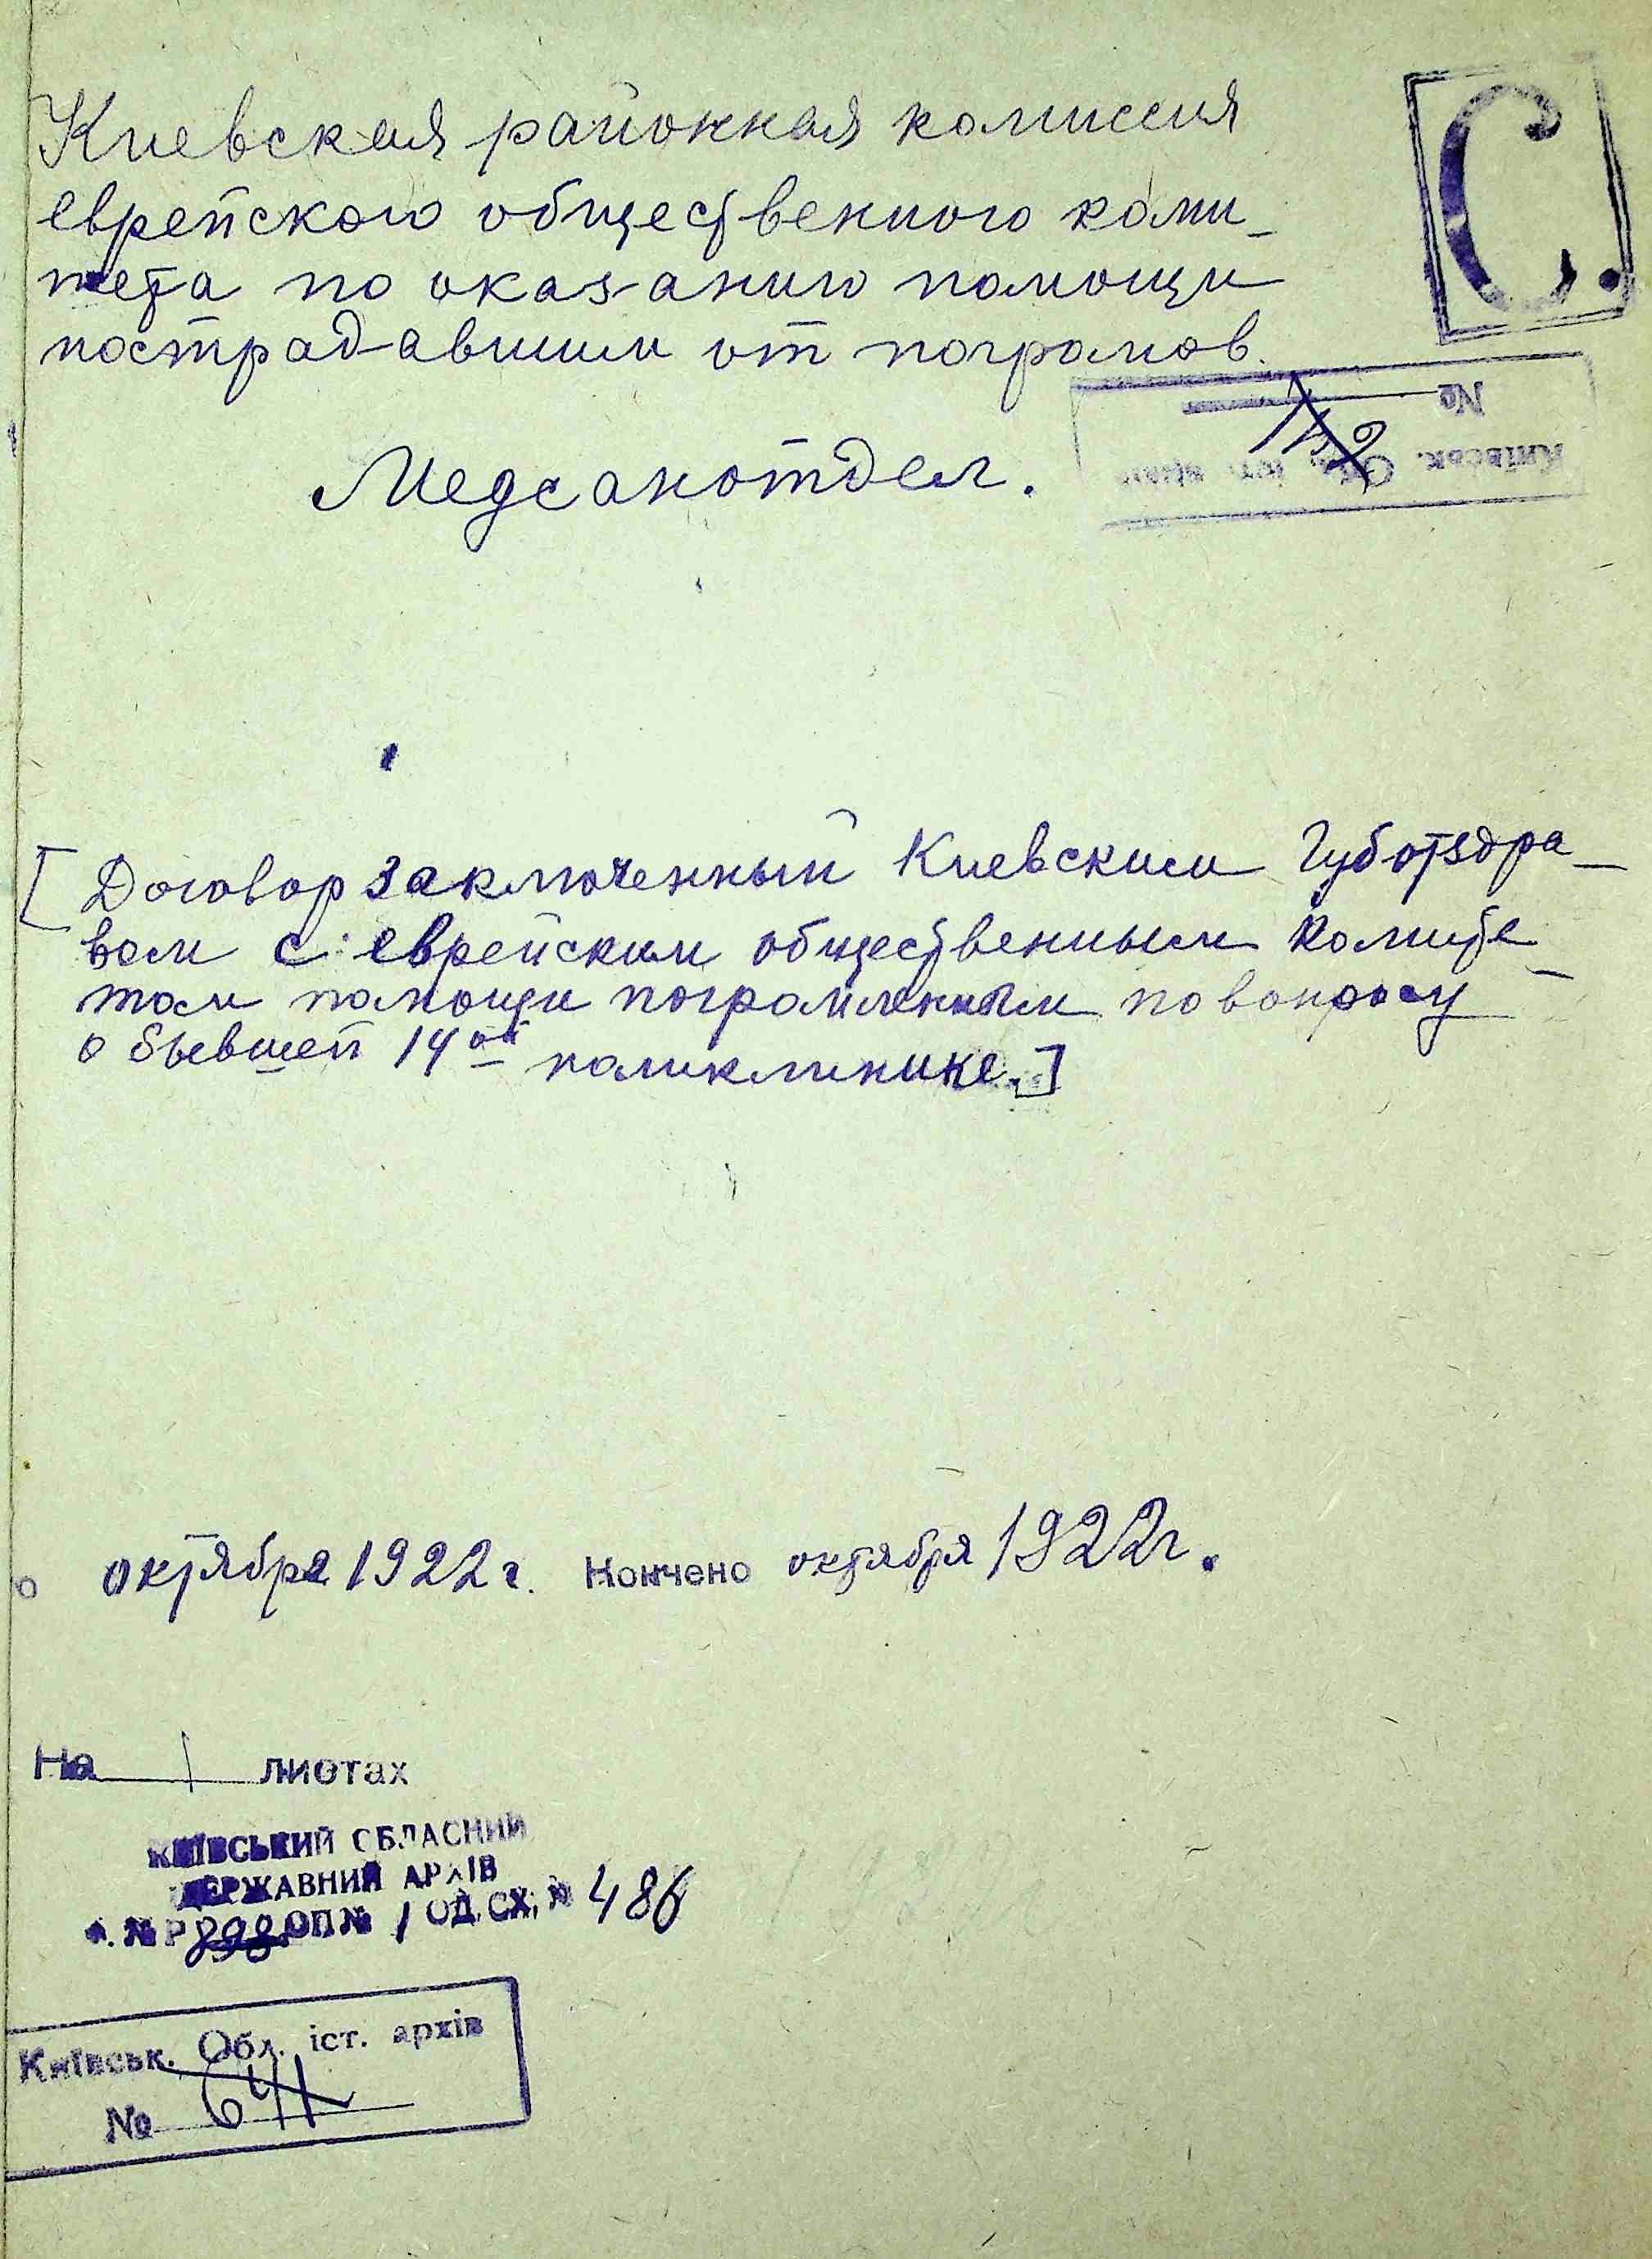 Киевская районная комиссия
С.
еврейского общественного коми-
тета по оказанию помощи
пострадавшим от погромов.
№
Київськ. Обл. іст. архів
Медсанотдел.
[Договор заключенный Киевским Губотздра-
вом с еврейским общественным комите-
том помощи погромленным по вопросу
о бывшей 14ой поликлинике.]
о октября 1922 г. Кончено октября 1922 г.
На 1 листах
КИЇВСЬКИЙ ОБЛАСНИЙ
ДЕРЖАВНИЙ АРХІВ
Ф. № Р 898 ОП № 1 ОД. СХ. № 486
Київськ. Обл. іст. архів
№ 641